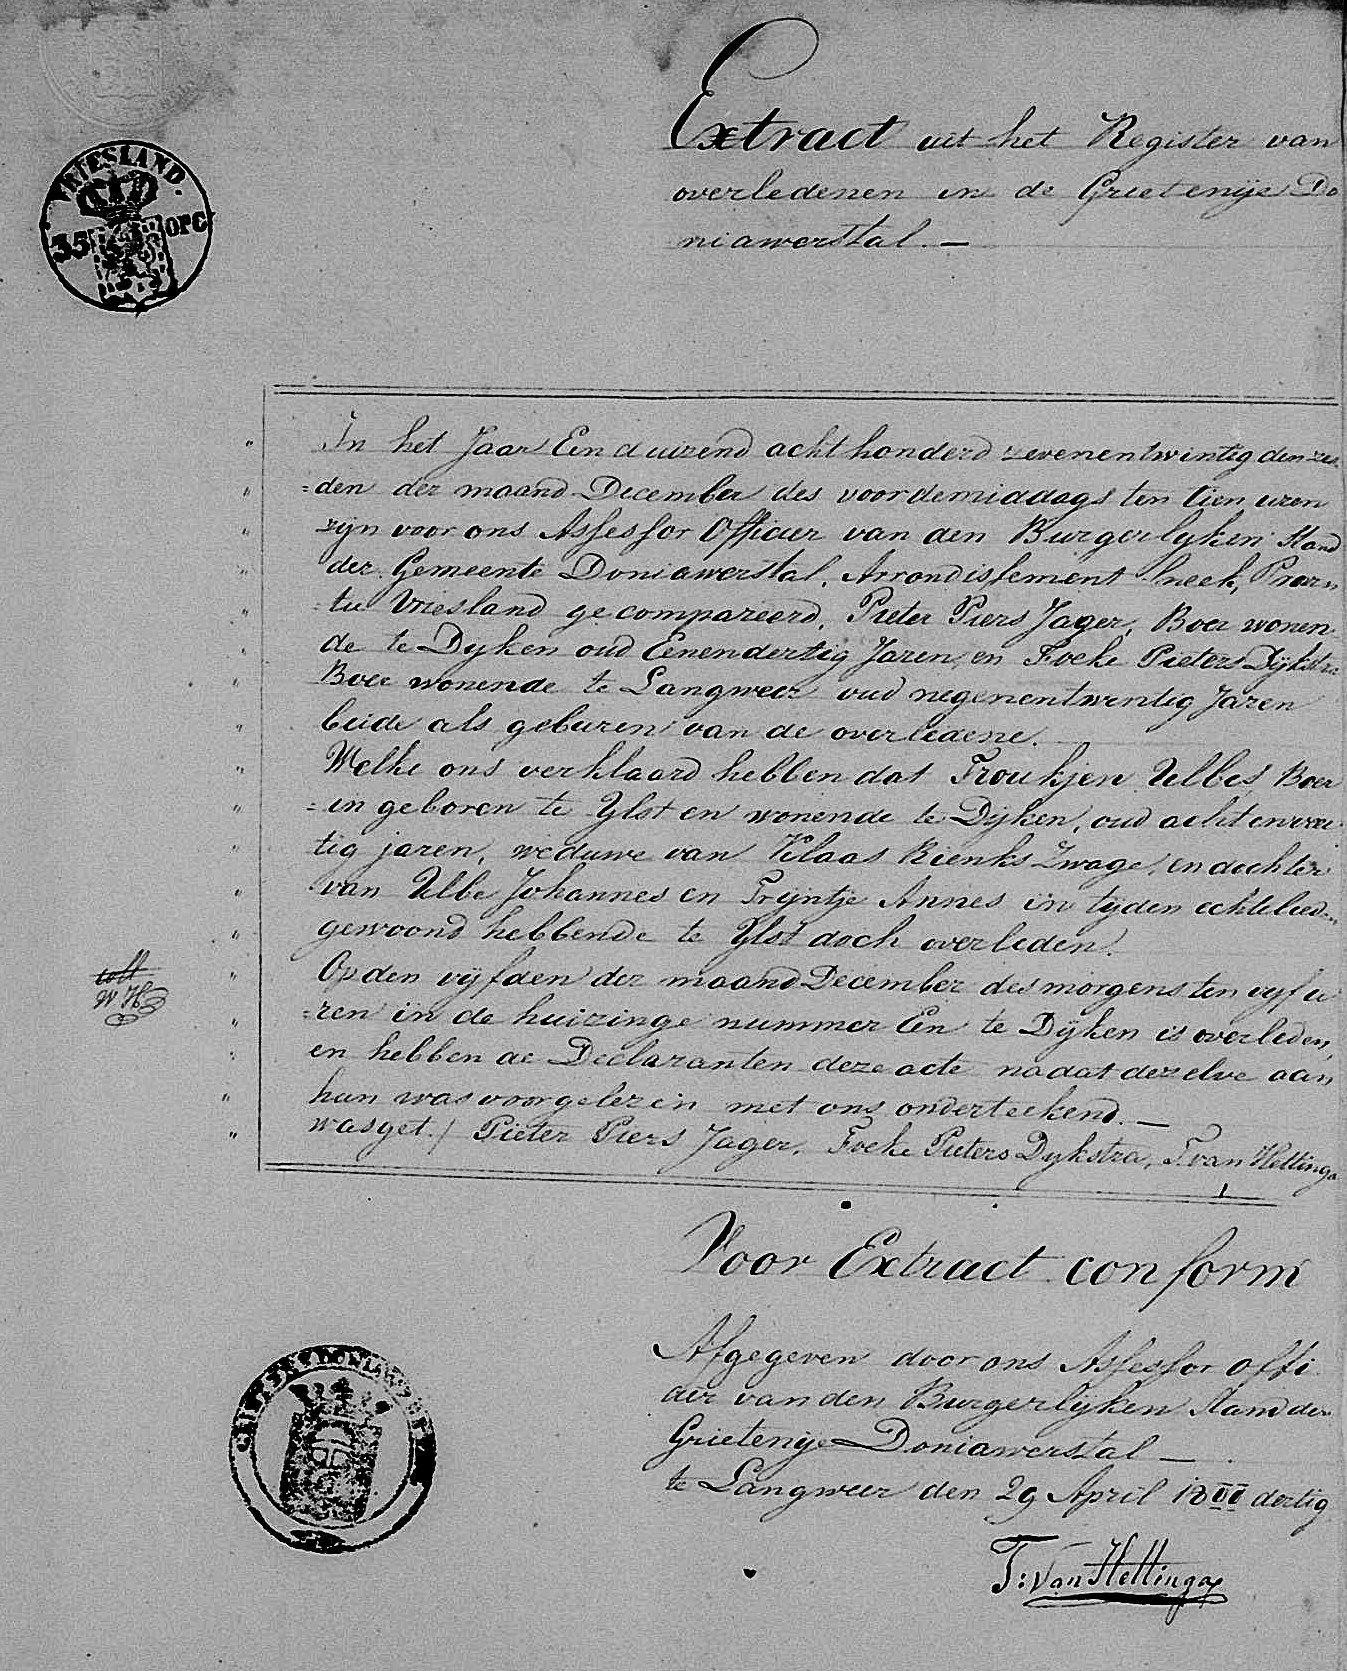 Extract uit het Register van
overledenen in de Grietenije Do
niawerstal. —
VRIESLAND.
35 OPC
In het Jaar Een duizend acht honderd zevenentwintig den zes
=den der maand December des voordemiddags ten tien uren
zijn voor ons Assessor Officier van den Burgerlyken Stand
der Gemeente Doniawerstal, Arrondissement Sneek, Provin
=tie Vriesland gecompareerd, Pieter Piers Jager, Boer wonen
de te Dyken oud Eenendertig Jaren, en Foeke Pieters Dijkstra
Boer wonende te Langweer oud negenentwintig Jaren
beide als geburen van de overledene.
Welke ons verklaard hebben dat Froukjen Ulbes, Boer
=in geboren te Ylst en wonende te Dijken, oud acht en
tig jaren, weduwe van Klaas Rienks Zwage, en dochter
van Ulbe Johannes en Trijntje Annes in tyden echtelied
gewoond hebbende te Ylst doch overleden.
Op den vyfden der maand December des morgens ten vyf u
=ren in de huizinge nummer Een te Dijken is overleden,
en hebben de Declaranten deze acte nadat dezelve aan
hun was voorgelezen met ons onderteekend. —
was get./ Pieter Piers Jager, Foeke Pieters Dykstra, T. van Hettinga
W H
Voor Extract conform
Afgegeven door ons Assessor offi
cier van den Burgerlijken Stand der
Grietenije Doniawerstal —
te Langweer den 29 April 18 dertig
T: van Hettinga